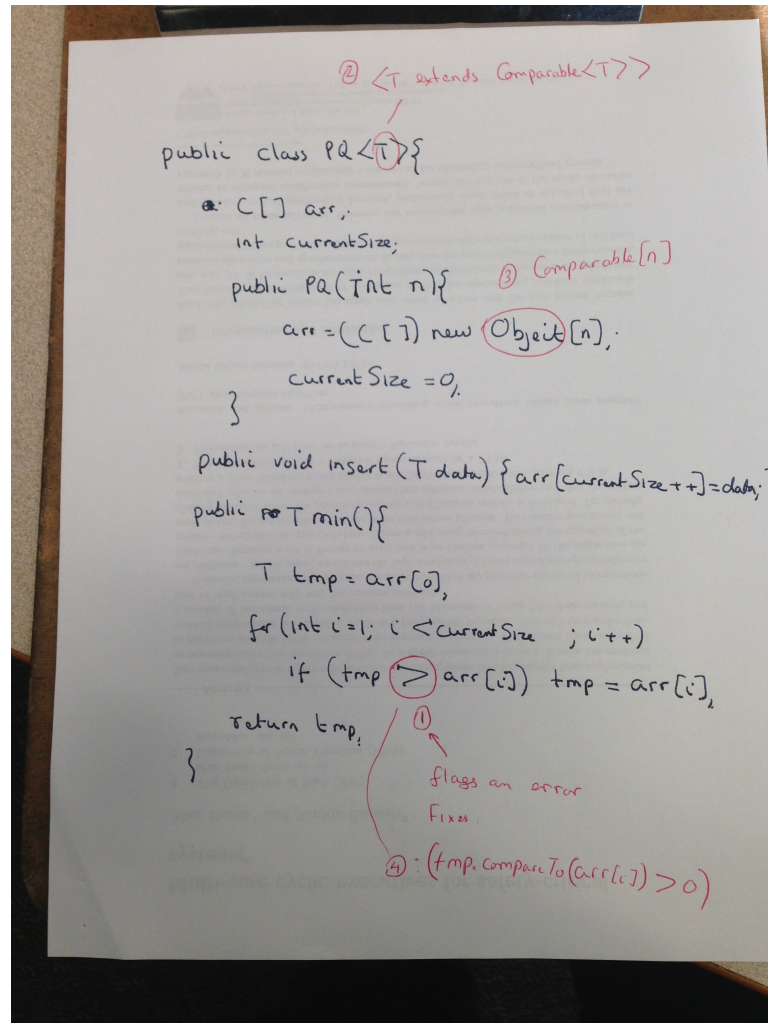 ② <T extends Comparable<T>>
public class PQ <T>{
C[] arr;
int currentSize;
public PQ(int n){
③ Comparable[n]
arr = (C[]) new Object[n];
currentSize = 0;
}
public void insert(T data) {arr[currentSize++]=data;
public T min(){
T tmp = arr[0];
for (int i=1; i < currentSize ; i++)
if (tmp > arr[i]) tmp = arr[i];
return tmp;
①
}
flags an error
Fixes:
④ : (tmp.compareTo(arr[i]) > 0)